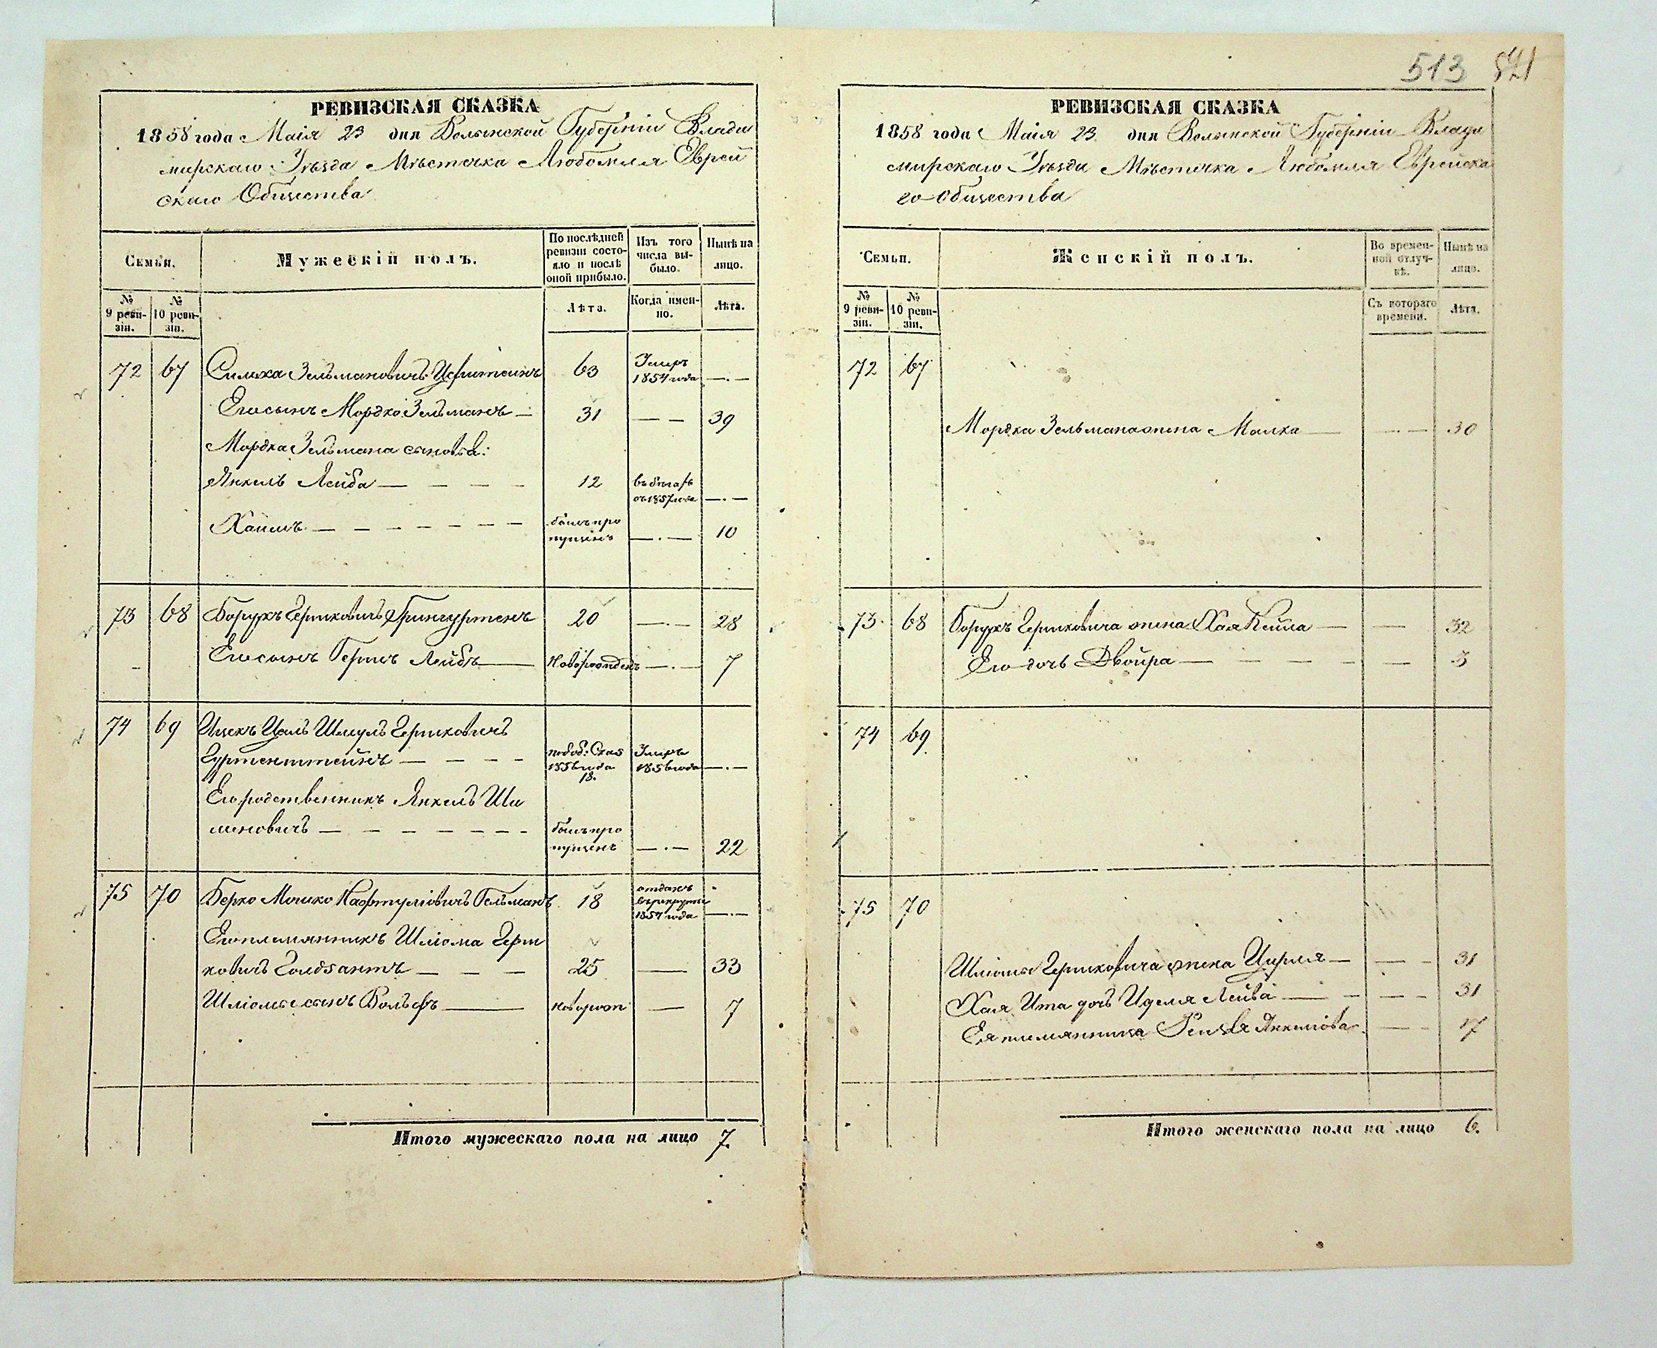 513 521
РЕВИЗСКАЯ СКАЗКА
1858 года Маія 23 дня Волынской Губерніи Влади
мирскаго Уѣзда Мѣстечка Любомля Еврей
скаго Общества
Семьи.
Мужескій полъ.
По послѣдней ревизіи состояло и послѣ оной прибыло.
Изъ того числа выбыло.
Нынѣ на лицо.
№ 9 ревизіи.
№ 10 ревизіи.
Лѣта.
Когда именно.
Лѣта.
72 67 Зельмановичъ 63 Умеръ 1854 года —.—
Его сынъ Мордко Зельманъ — 31 — — 39
Мордка Зельмана сыновья:
Янкель Лейба — — — — 12 въ бѣгахъ съ 1857 года —.—
Хаимъ — — — — — — — былъ пропущенъ —.— 10
73 68 Борухъ Гершковичъ 20 —.— 28
Его сынъ Гершъ Лейбъ — новорожденъ —.— 7
74 69 Ицекъ Шмуль Гершковичъ
Гуртенштейнъ — — — — 1856 года 18. Умеръ 1856 года —.—
Его родственникъ Янкель Ши
моновичъ — — — — — — — былъ пропущенъ —.— 22
75 70 Берко Мошко Нафтуліовичъ Гельманъ 18 отданъ въ рекруты 1854 года —.—
Его племянникъ Шліома Герш
ковичъ — — — 25 — 33
Шліомы сынъ Вольфъ — новорож — 7
Итого мужескаго пола на лицо 7.
РЕВИЗСКАЯ СКАЗКА
1858 года Маія 23 дня Волынской Губерніи Влади
мирскаго Уѣзда Мѣстечка Любомля Еврейска
го Общества
Семьи.
Женскій полъ.
Во временной отлучкѣ.
Нынѣ на лицо.
№ 9 ревизіи.
№ 10 ревизіи.
Съ котораго времени.
Лѣта.
72 67
Мордка Зельмана жена Малка — — — 30
73 68 Борухъ Гершковича жена Хая Кейла — — 32
Его дочь Двойра — — — — — — 3
74 69
75 70
Шліомы Гершковича жена Цирля — — — 31
Хая Ита дочь Иделя Лейба — — — — 31
Ея племянница Янкелюва — 17
Итого женскаго пола на лицо 6.